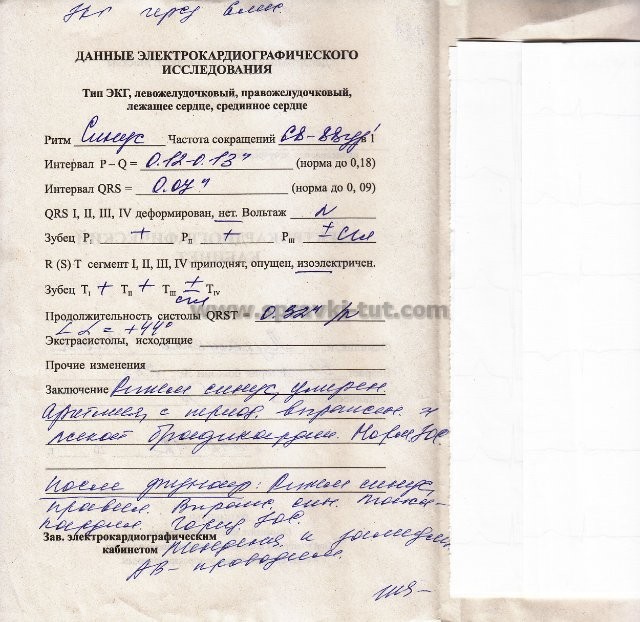 ЭКГ перед
ДАННЫЕ ЭЛЕКТРОКАРДИОГРАФИЧЕСКОГО
ИССЛЕДОВАНИЯ
Тип ЭКГ, левожелудочковый, правожелудочковый,
лежащее сердце, срединное сердце
Ритм Синус Частота сокращений в 1
Интервал P – Q = 0.12-0.13" (норма до 0,18)
Интервал QRS = 0.07" (норма до 0, 09)
QRS I, II, III, IV деформирован, нет. Вольтаж N
Зубец P I + P II + P III ± сгл
R (S) T сегмент I, II, III, IV приподнят, опущен, изоэлектричен.
Зубец T I + T II + T III ± сгл T IV
www.spravki-tut.com
Продолжительность систолы QRST - 0.32"
∠α = +44°
Экстрасистолы, исходящие
Прочие изменения
Заключение Ритм синус, умерен.
Аритмия, с период. выражен.
брадикардии. Норм ЭОС.
После физнагр: Ритм синус,
правил. Выраж син. тахи-
кардия. Гориз. ЭОС.
Зав. электрокардиографическим
кабинетом Тенденция к замедл.
АВ - проводим.